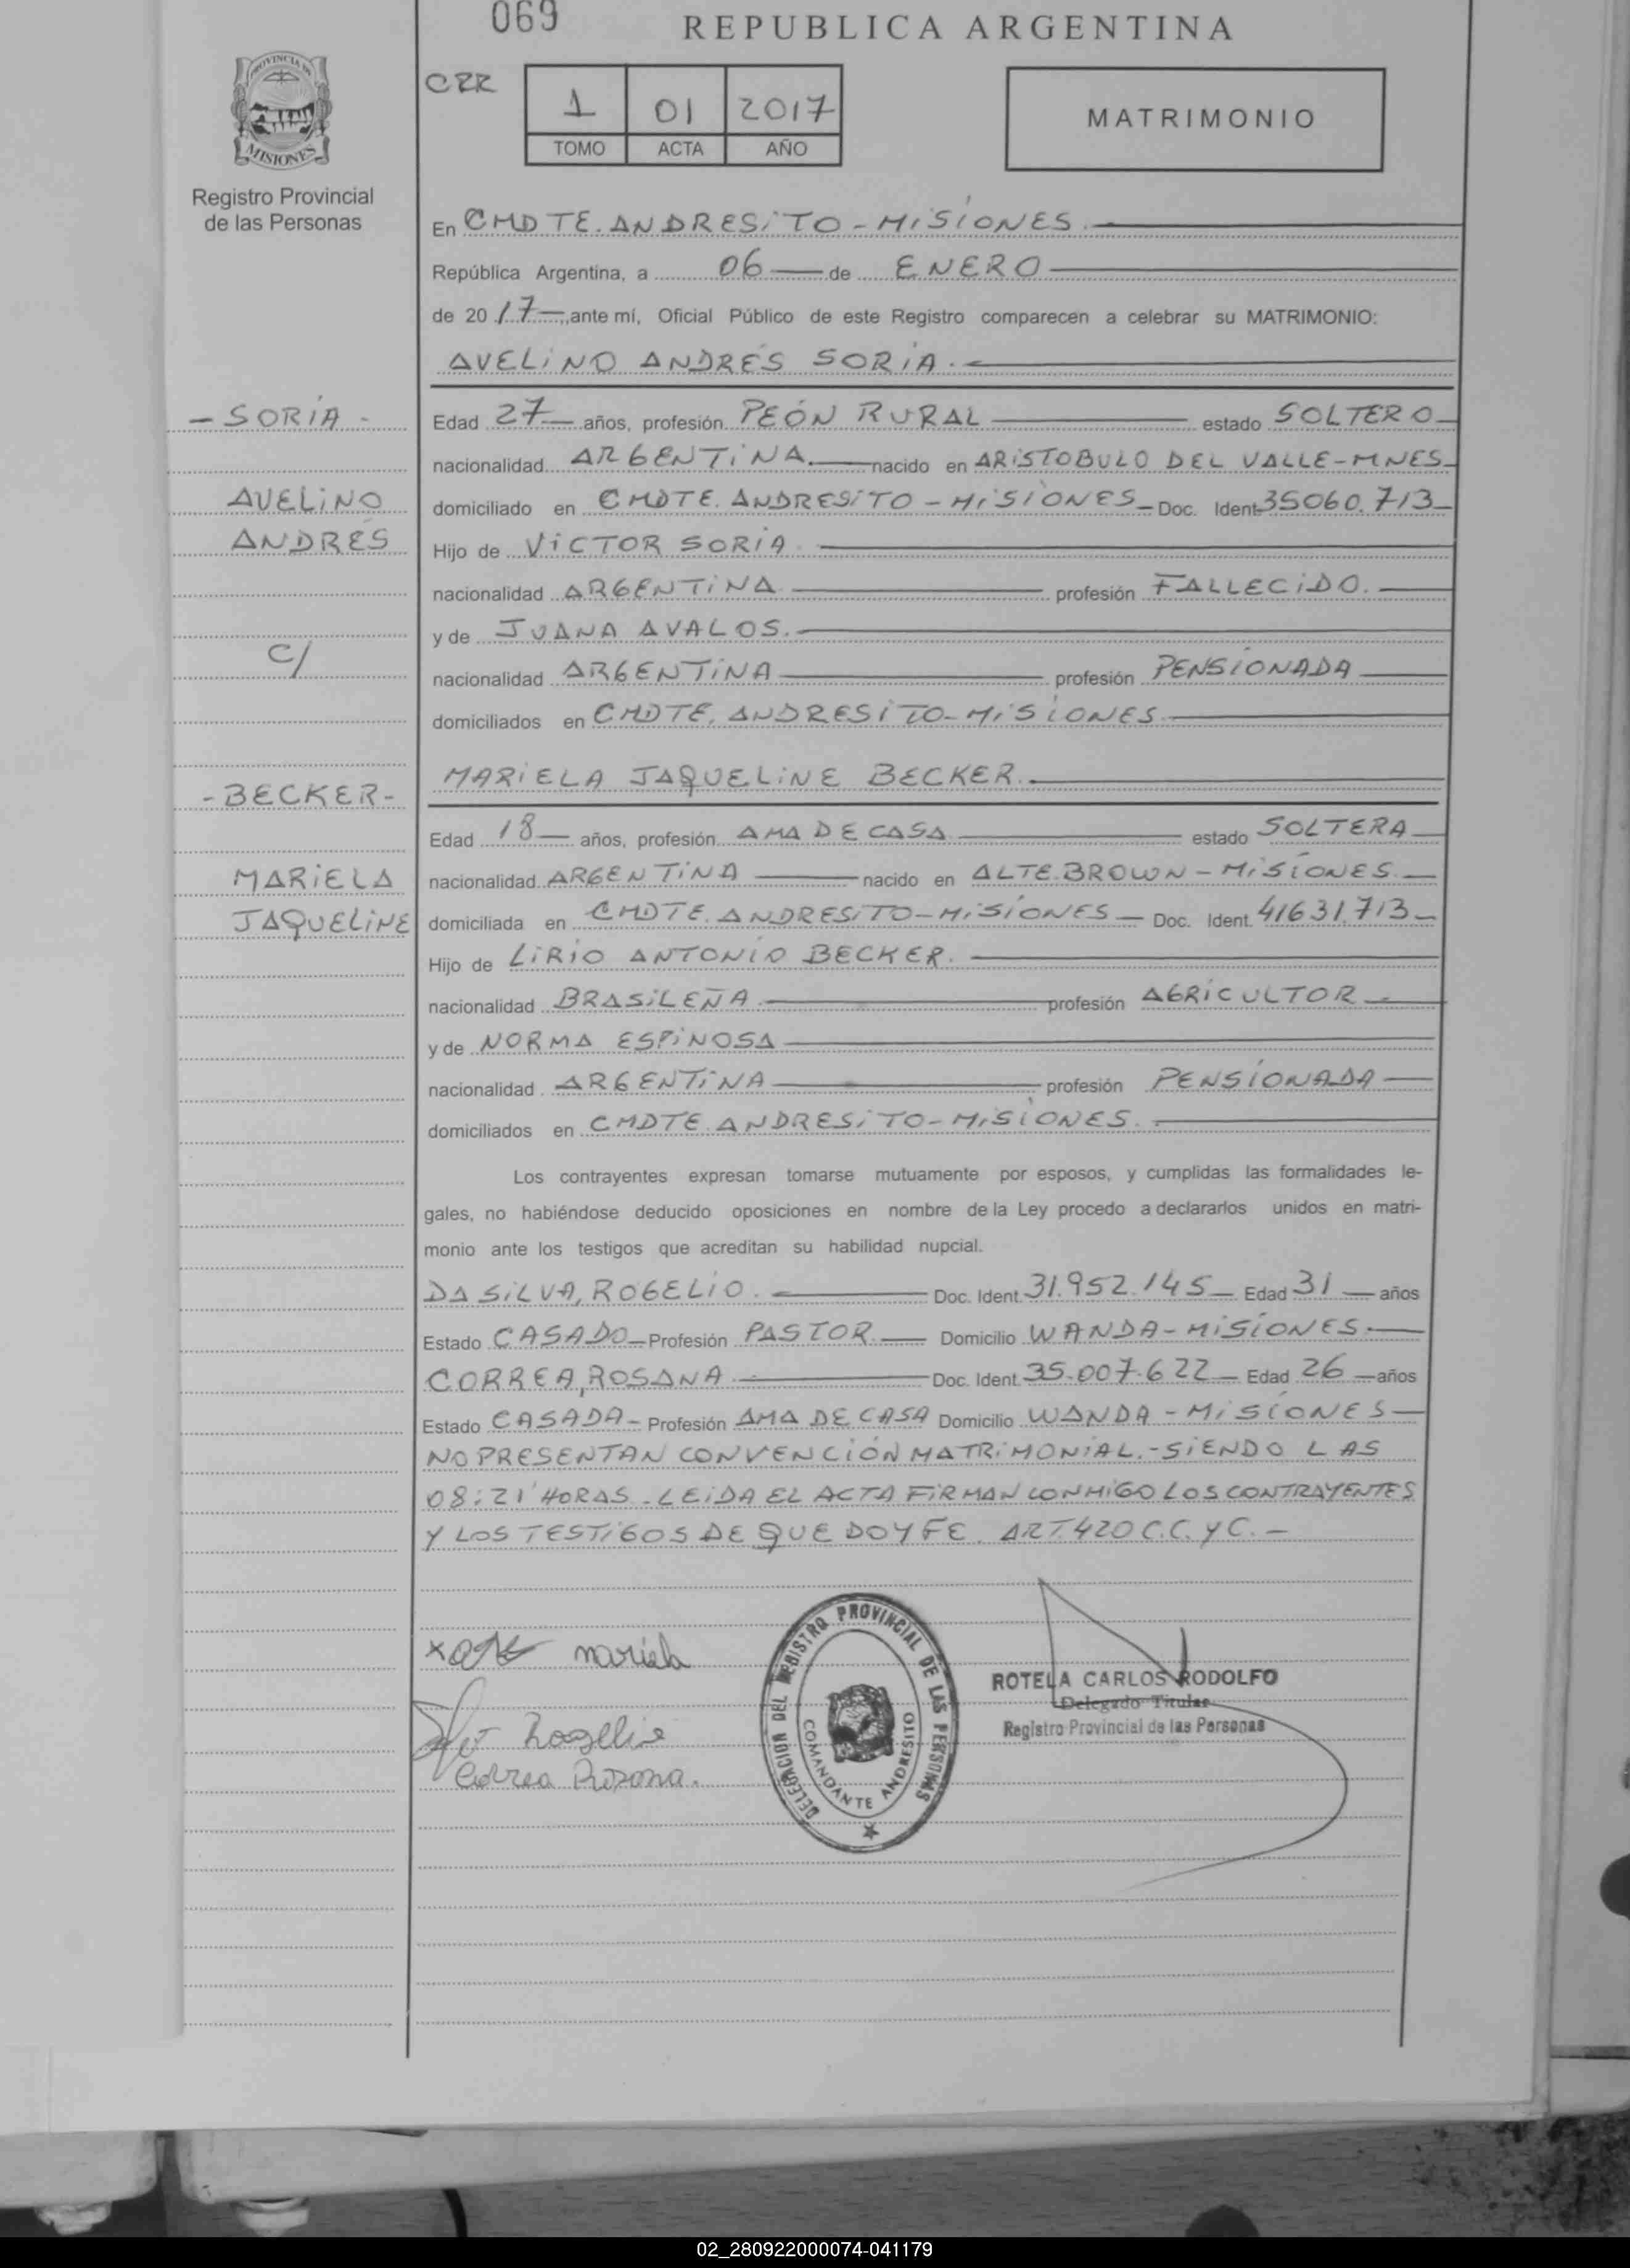 069
REPUBLICA ARGENTINA
PROVINCIA DE
MISIONES
Registro Provincial
de las Personas
CRR
1 01 2017
TOMO ACTA AÑO
MATRIMONIO
En CMDTE. ANDRESITO - MISIONES.
República Argentina, a 06 de ENERO
de 2017, ante mí, Oficial Público de este Registro comparecen a celebrar su MATRIMONIO:
AVELINO ANDRÉS SORIA.
- SORIA -
Edad 27 años, profesión PEÓN RURAL estado SOLTERO
nacionalidad ARGENTINA. nacido en ARISTOBULO DEL VALLE-MNES
AVELINO
domiciliado en CMDTE. ANDRESITO - MISIONES - Doc. Ident. 35060.713
ANDRÉS
Hijo de VICTOR SORIA.
nacionalidad ARGENTINA profesión FALLECIDO.
y de JUANA AVALOS.
C/
nacionalidad ARGENTINA profesión PENSIONADA
domiciliados en CMDTE. ANDRESITO - MISIONES
MARIELA JAQUELINE BECKER.
- BECKER -
Edad 18 años, profesión AMA DE CASA estado SOLTERA
MARIELA
nacionalidad ARGENTINA nacido en ALTE. BROWN - MISIONES.
JAQUELINE
domiciliada en CMDTE. ANDRESITO - MISIONES - Doc. Ident. 41631.713
Hijo de LIRIO ANTONIO BECKER.
nacionalidad BRASILEÑA. profesión AGRICULTOR
y de NORMA ESPINOSA
nacionalidad ARGENTINA profesión PENSIONADA
domiciliados en CMDTE. ANDRESITO - MISIONES.
Los contrayentes expresan tomarse mutuamente por esposos, y cumplidas las formalidades le-
gales, no habiéndose deducido oposiciones en nombre de la Ley procedo a declararlos unidos en matri-
monio ante los testigos que acreditan su habilidad nupcial.
DA SILVA, ROGELIO. Doc. Ident. 31.952.145 Edad 31 años
Estado CASADO - Profesión PASTOR. Domicilio WANDA - MISIONES.
CORREA, ROSANA. Doc. Ident. 35.007.622 Edad 26 años
Estado CASADA - Profesión AMA DE CASA Domicilio WANDA - MISIONES
NO PRESENTAN CONVENCIÓN MATRIMONIAL. - SIENDO LAS
08:21 HORAS. LEIDA EL ACTA FIRMAN CONMIGO LOS CONTRAYENTES
Y LOS TESTIGOS DE QUE DOY FE. ART. 420 C.C. Y C. -
Mariela
Rogelio
Correa Rosana.
DELEGACION DEL REGISTRO PROVINCIAL DE LAS PERSONAS
COMANDANTE ANDRESITO
ROTELA CARLOS RODOLFO
Delegado Titular
Registro Provincial de las Personas
02_280922000074-041179